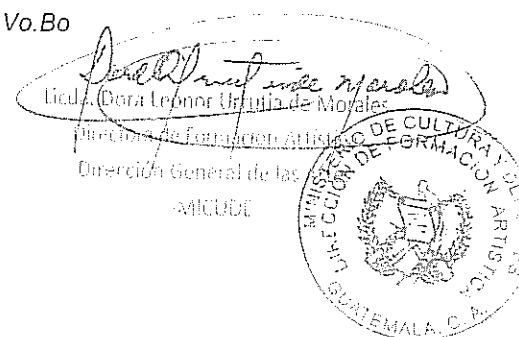 Vo.Bo
Licda. Dora Leonor Urrutia de Morales
Directora de Formación Artística
Dirección General de las
-MICUDE
MINISTERIO DE CULTURA Y DE
DIRECCIÓN DE FORMACIÓN ARTISTICA
GUATEMALA, C. A.